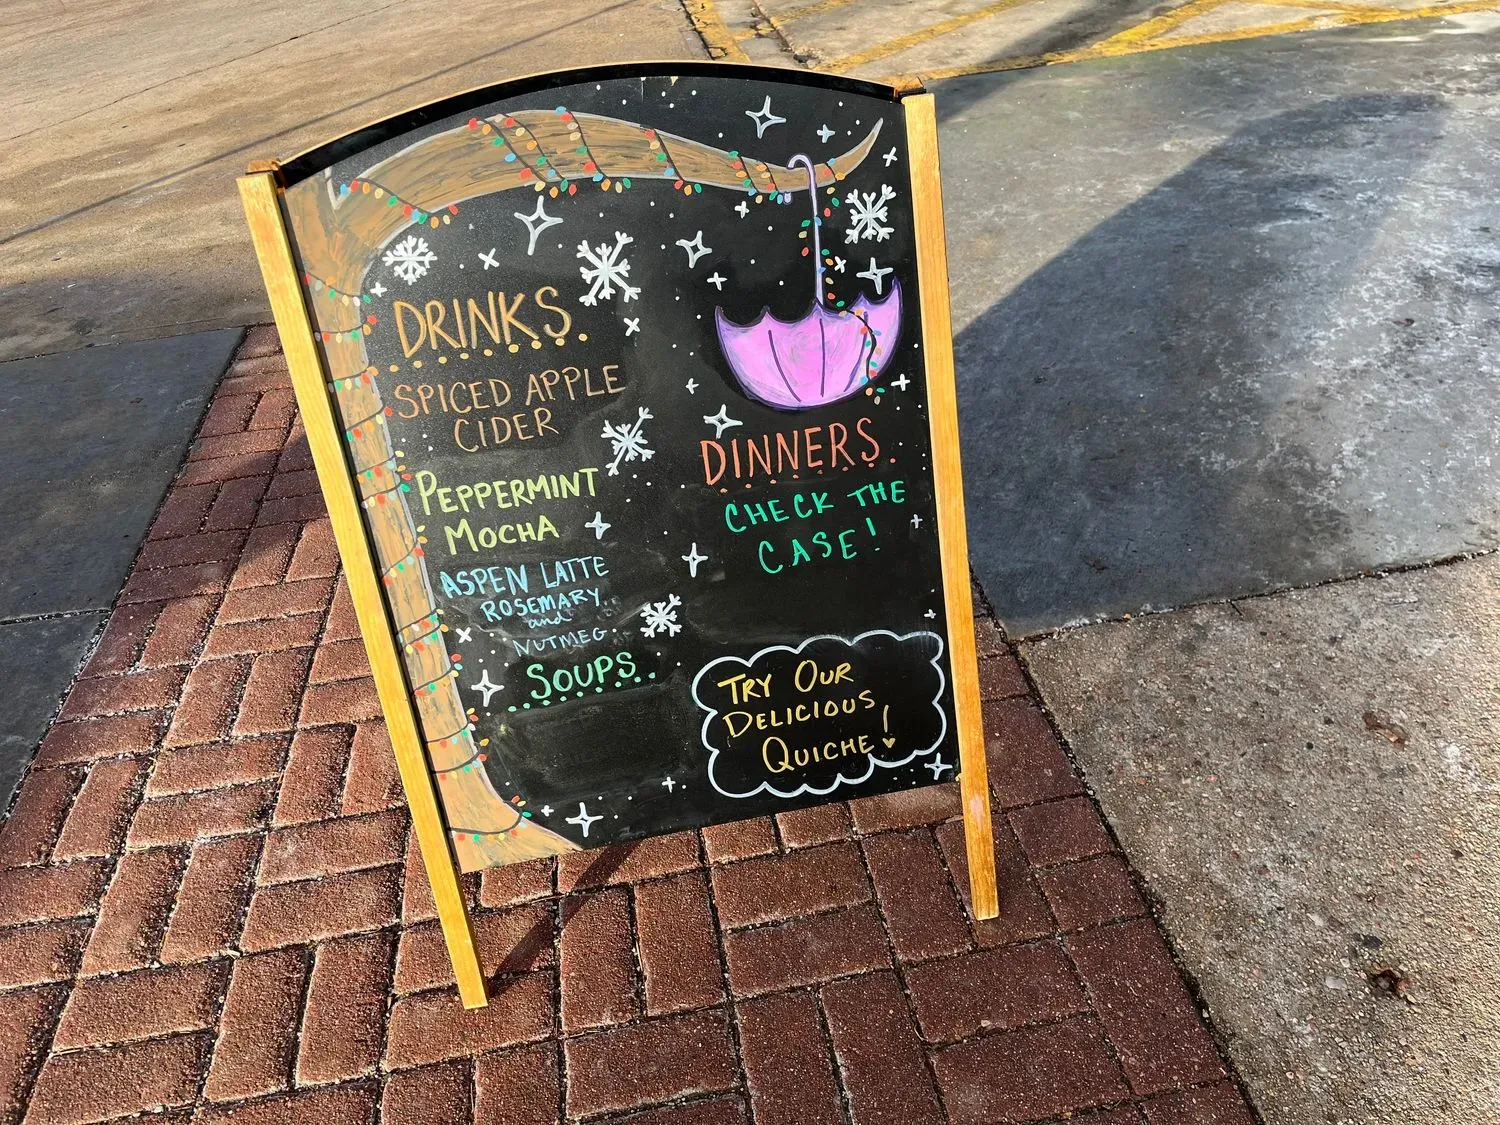 DRINKS
SPICED APPLE
CIDER
PEPPERMINT
MOCHA
ASPEN LATTE
ROSEMARY
and
NUTMEG
SOUPS
DINNERS
CHECK THE
CASE!
TRY OUR
DELICIOUS
QUICHE!